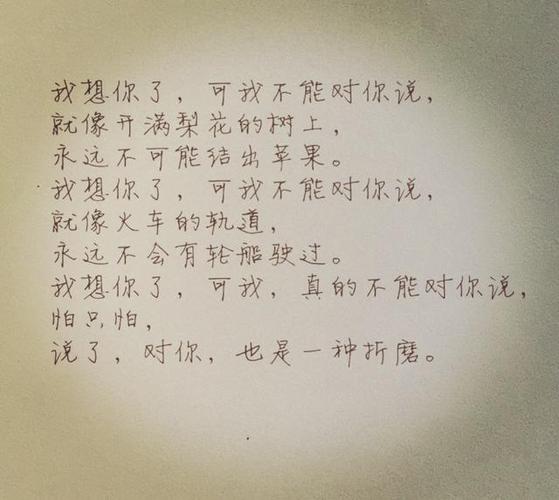 我想你了，可我不能对你说，
就像开满梨花的树上，
永远不可能结出苹果。
我想你了，可我不能对你说，
就像火车的轨道，
永远不会有轮船驶过。
我想你了，可我，真的不能对你说，
怕只怕，
说了，对你，也是一种折磨。